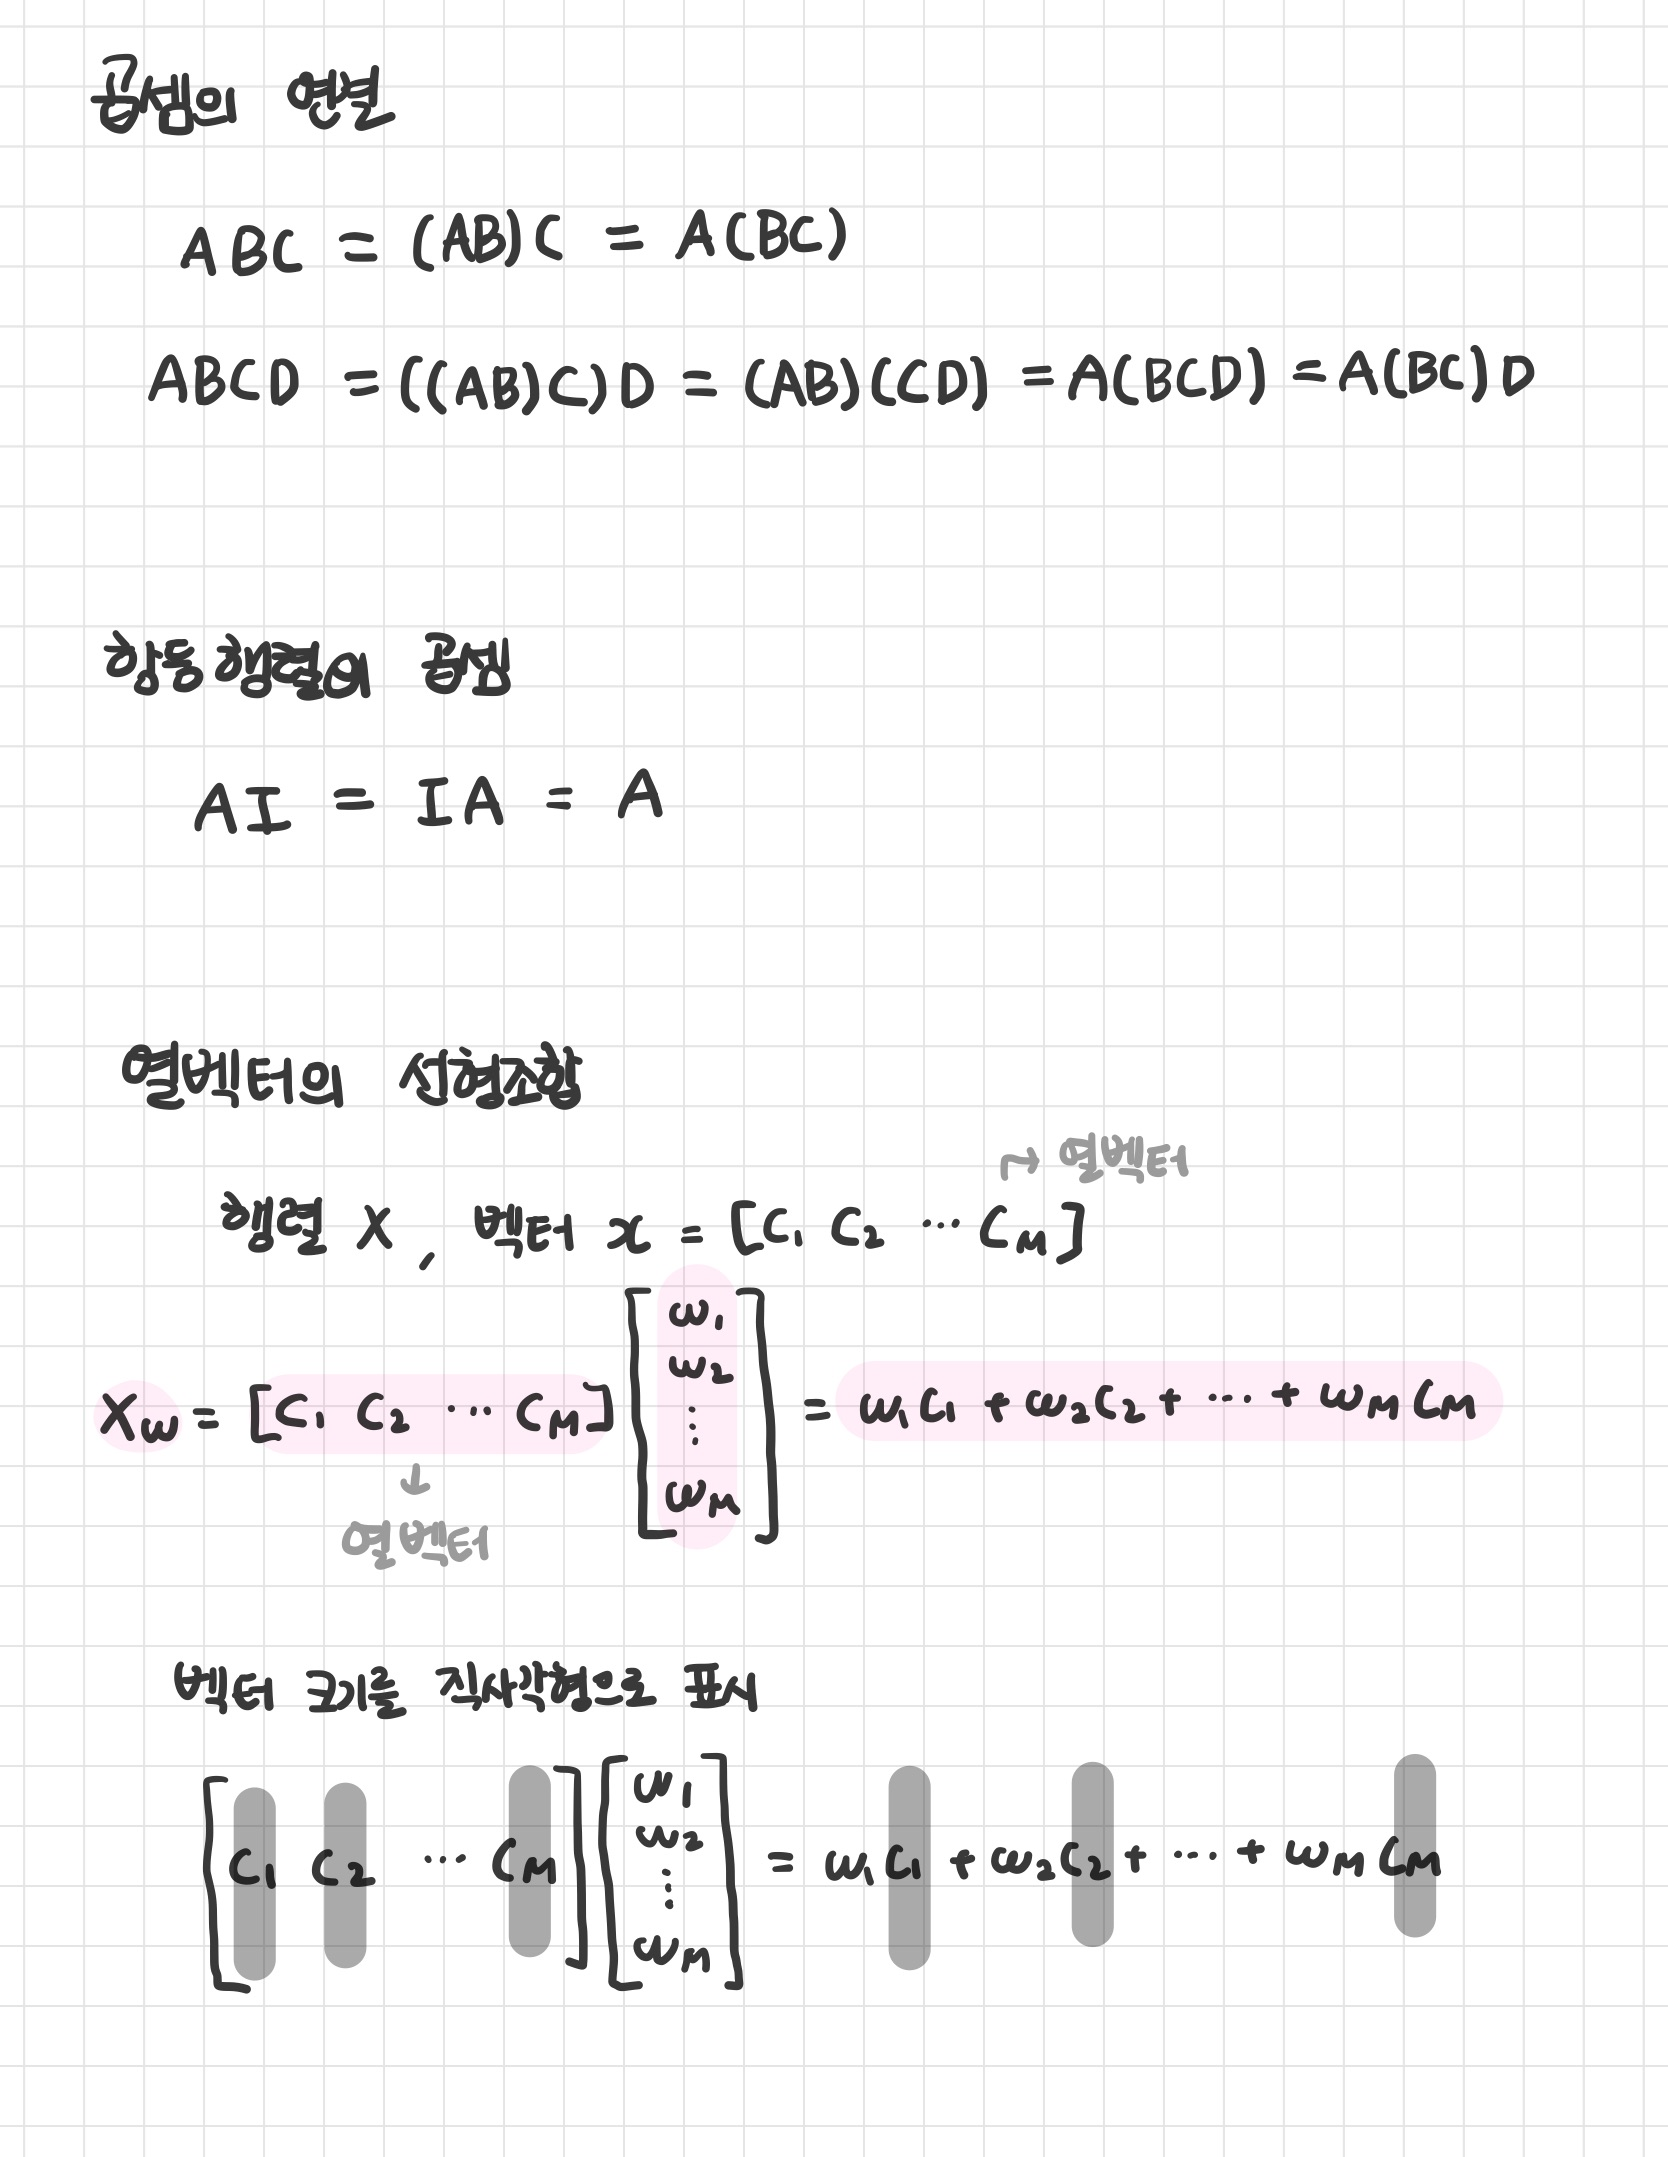 곱셈의 연결
ABC = (AB)C = A(BC)
ABCD = ((AB)C)D = (AB)(CD) = A(BCD) = A(BC)D
항등행렬의 곱셈
AI = IA = A
열벡터의 선형조합
↱ 열벡터
행렬 X, 벡터 x = [C₁ C₂ ⋯ C_M]
X_w = [C₁ C₂ ⋯ C_M] [ω₁ ω₂ ⋮ ω_M] = ω₁C₁ + ω₂C₂ + ⋯ + ω_M C_M
↓
열벡터
벡터 크기를 직사각형으로 표시
[C₁ C₂ ⋯ C_M] [ω₁ ω₂ ⋮ ω_M] = ω₁C₁ + ω₂C₂ + ⋯ + ω_M C_M